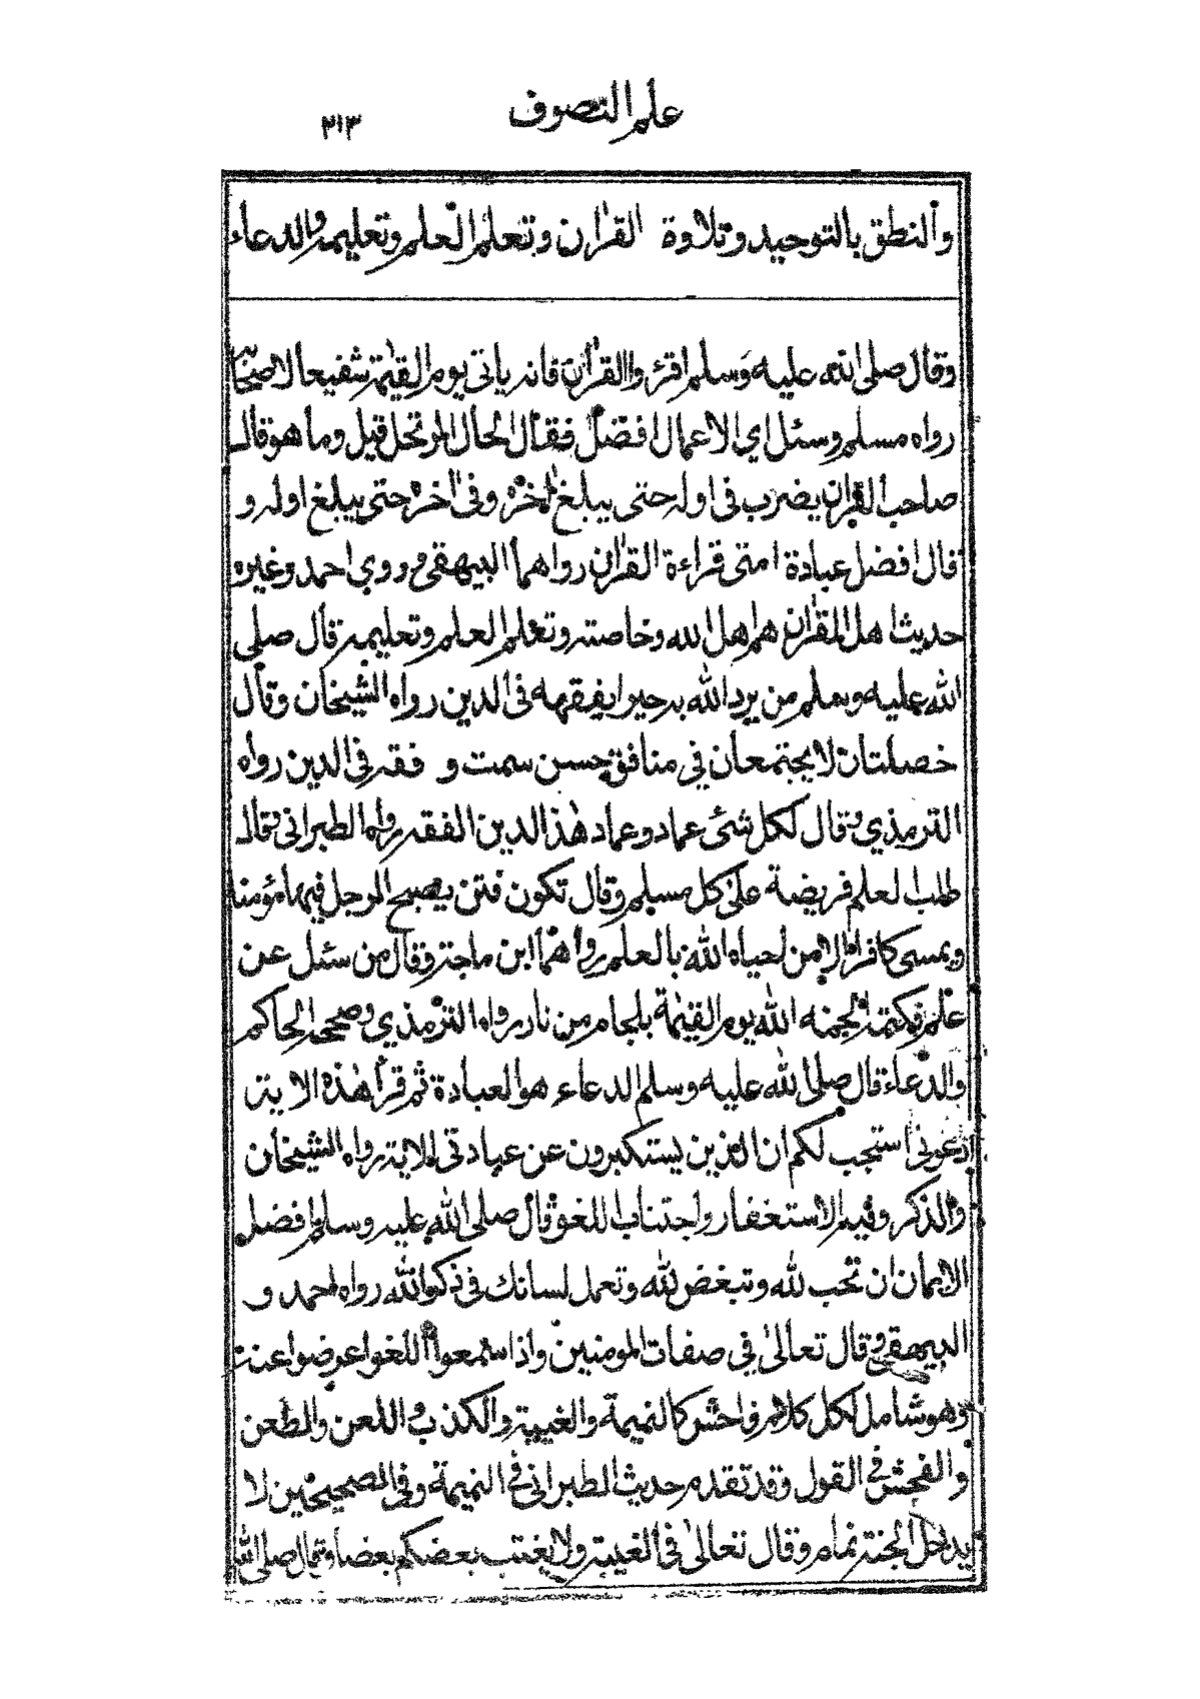 علم التصوف
٢١٣
والنطق بالتوحيد وتلاوة القرآن وتعلم العلم وتعليمه والدعاء
وقال صلى الله عليه وسلم اقرؤا القرآن فانه ياتى يوم القيٰمة شفيعا لاصحابه
رواه مسلم وسئل اي الاعمال افضل فقال الحال المرتحل قيل وما هو قال
صاحب القرآن يضرب فى اوله حتى يبلغ اٰخره وفى اٰخره حتى يبلغ اوله و
قال افضل عبادة امتى قراءة القرآن رواهما البيهقى وروي احمد وغيره
حديث اهل القرآن هم اهل الله وخاصته وتعلم العلم وتعليمه قال صلى
الله عليه وسلم من يرد الله به خيرا يفقهه فى الدين رواه الشيخان وقال
خصلتان لا يجتمعان في منافق حسن سمت و فقه فى الدين رواه
الترمذي وقال لكل شئ عماد وعماد هٰذا الدين الفقه رواه الطبرانى وقال
طلب العلم فريضة على كل مسلم وقال تكون فتن يصبح الرجل فيها مؤمنا
ويمسى كافرا الا من احياه الله بالعلم رواهما ابن ماجة وقال من سئل عن
علم فكتمه الجمه الله يوم القيٰمة بلجام من نار رواه الترمذي وصححه الحاكم
والدعاء قال صلى الله عليه وسلم الدعاء هو العبادة ثم قرأ هٰذه الاية
ادعونى استجب لكم ان الذين يستكبرون عن عبادتى الاية رواه الشيخان
والذكر وفيه الاستغفار واجتناب اللغو قال صلى الله عليه وسلم افضل
الايمان ان تحب لله وتبغض لله وتعمل لسانك فى ذكر الله رواه احمد و
البيهقى وقال تعالىٰ في صفات المومنين واذا سمعوا اللغو اعرضوا عنه
وهو شامل لكل كلام فاحش كالنميمة والغيبة والكذب واللعن والطعن
والفحش فى القول وقد تقدم حديث الطبرانى فى النميمة وفى الصحيحين لا
يدخل الجنة نمام وقال تعالىٰ فى الغيبة ولا يغتب بعضكم بعضا وقال صلى الله